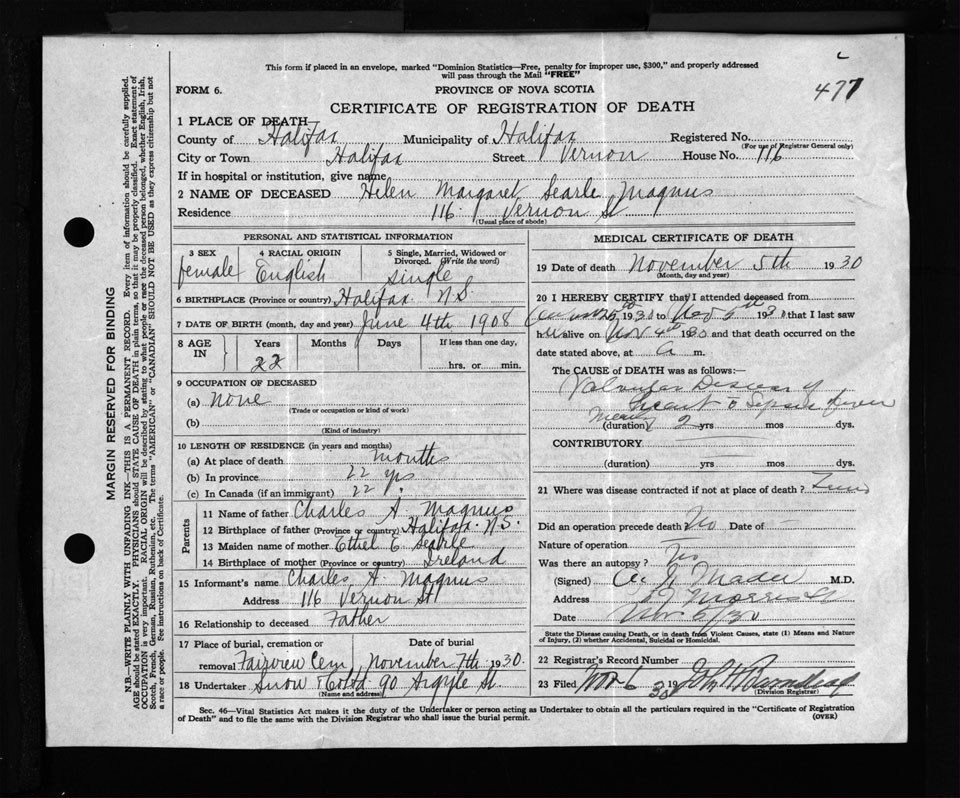 This form if placed in an envelope, marked "Dominion Statistics—Free, penalty for improper use, $300," and properly addressed
will pass through the Mail "FREE"
477
FORM 6.
PROVINCE OF NOVA SCOTIA
CERTIFICATE OF REGISTRATION OF DEATH
1 PLACE OF DEATH
County of Halifax Municipality of Halifax Registered No.
(For use of Registrar General only)
City or Town Halifax Street Vernon House No. 116
If in hospital or institution, give name
2 NAME OF DECEASED Helen Margaret Searle Magnus
Residence 116 Vernon St
(Usual place of abode)
PERSONAL AND STATISTICAL INFORMATION
3 SEX female
4 RACIAL ORIGIN English
5 Single, Married, Widowed or Divorced. (Write the word) Single
6 BIRTHPLACE (Province or country) Halifax N.S.
7 DATE OF BIRTH (month, day and year) June 4th 1908
8 AGE IN Years Months Days If less than one day,
22 hrs. or min.
9 OCCUPATION OF DECEASED
(a) None
(Trade or occupation or kind of work)
(b)
(Kind of industry)
10 LENGTH OF RESIDENCE (in years and months)
(a) At place of death months
(b) In province 22 yrs
(c) In Canada (if an immigrant) 22
Parents
11 Name of father Charles A. Magnus
12 Birthplace of father (Province or country) Halifax N.S.
13 Maiden name of mother Ethel E. Searle
14 Birthplace of mother (Province or country) Ireland
15 Informant's name Charles A. Magnus
Address 116 Vernon St
16 Relationship to deceased Father
17 Place of burial, cremation or Date of burial
removal Fairview Cem November 7th 1930.
18 Undertaker Snow & Co Ltd 90 Argyle St
(Name and address)
MEDICAL CERTIFICATE OF DEATH
19 Date of death November 5th 1930
(Month, day and year)
20 I HEREBY CERTIFY that I attended deceased from
1930 to Nov 5th 1930 that I last saw
her alive on Nov 4th 1930 and that death occurred on the
date stated above, at a m.
The CAUSE of DEATH was as follows:—
Valvular Disease of
Heart
(duration) Nearly 2 yrs mos dys.
CONTRIBUTORY
(duration) yrs mos dys.
21 Where was disease contracted if not at place of death?
Did an operation precede death No Date of —
Nature of operation —
Was there an autopsy?
(Signed) Mader M.D.
Address Morris St
Date Nov 5/30
State the Disease causing Death, or in death from Violent Causes, state (1) Means and Nature
of Injury, (2) whether Accidental, Suicidal or Homicidal.
22 Registrar's Record Number
23 Filed Nov 6 1930
(Division Registrar)
Sec. 46—Vital Statistics Act makes it the duty of the Undertaker or person acting as Undertaker to obtain all the particulars required in the "Certificate of Registration
of Death" and to file the same with the Division Registrar who shall issue the burial permit.
(OVER)
MARGIN RESERVED FOR BINDING
N.B.—WRITE PLAINLY WITH UNFADING INK—THIS IS A PERMANENT RECORD. Every item of information should be carefully supplied.
AGE should be stated EXACTLY. PHYSICIANS should STATE CAUSE OF DEATH in plain terms, so that it may be properly classified. Exact statement of
OCCUPATION is very important. RACIAL ORIGIN will be described by stating to what people or race the deceased person belonged, whether English, Irish,
Scotch, French, German, Russian, Ruthenian, etc. The terms "AMERICAN" or "CANADIAN" SHOULD NOT BE USED as they express citizenship but not
a race or people. See instructions on back of Certificate.